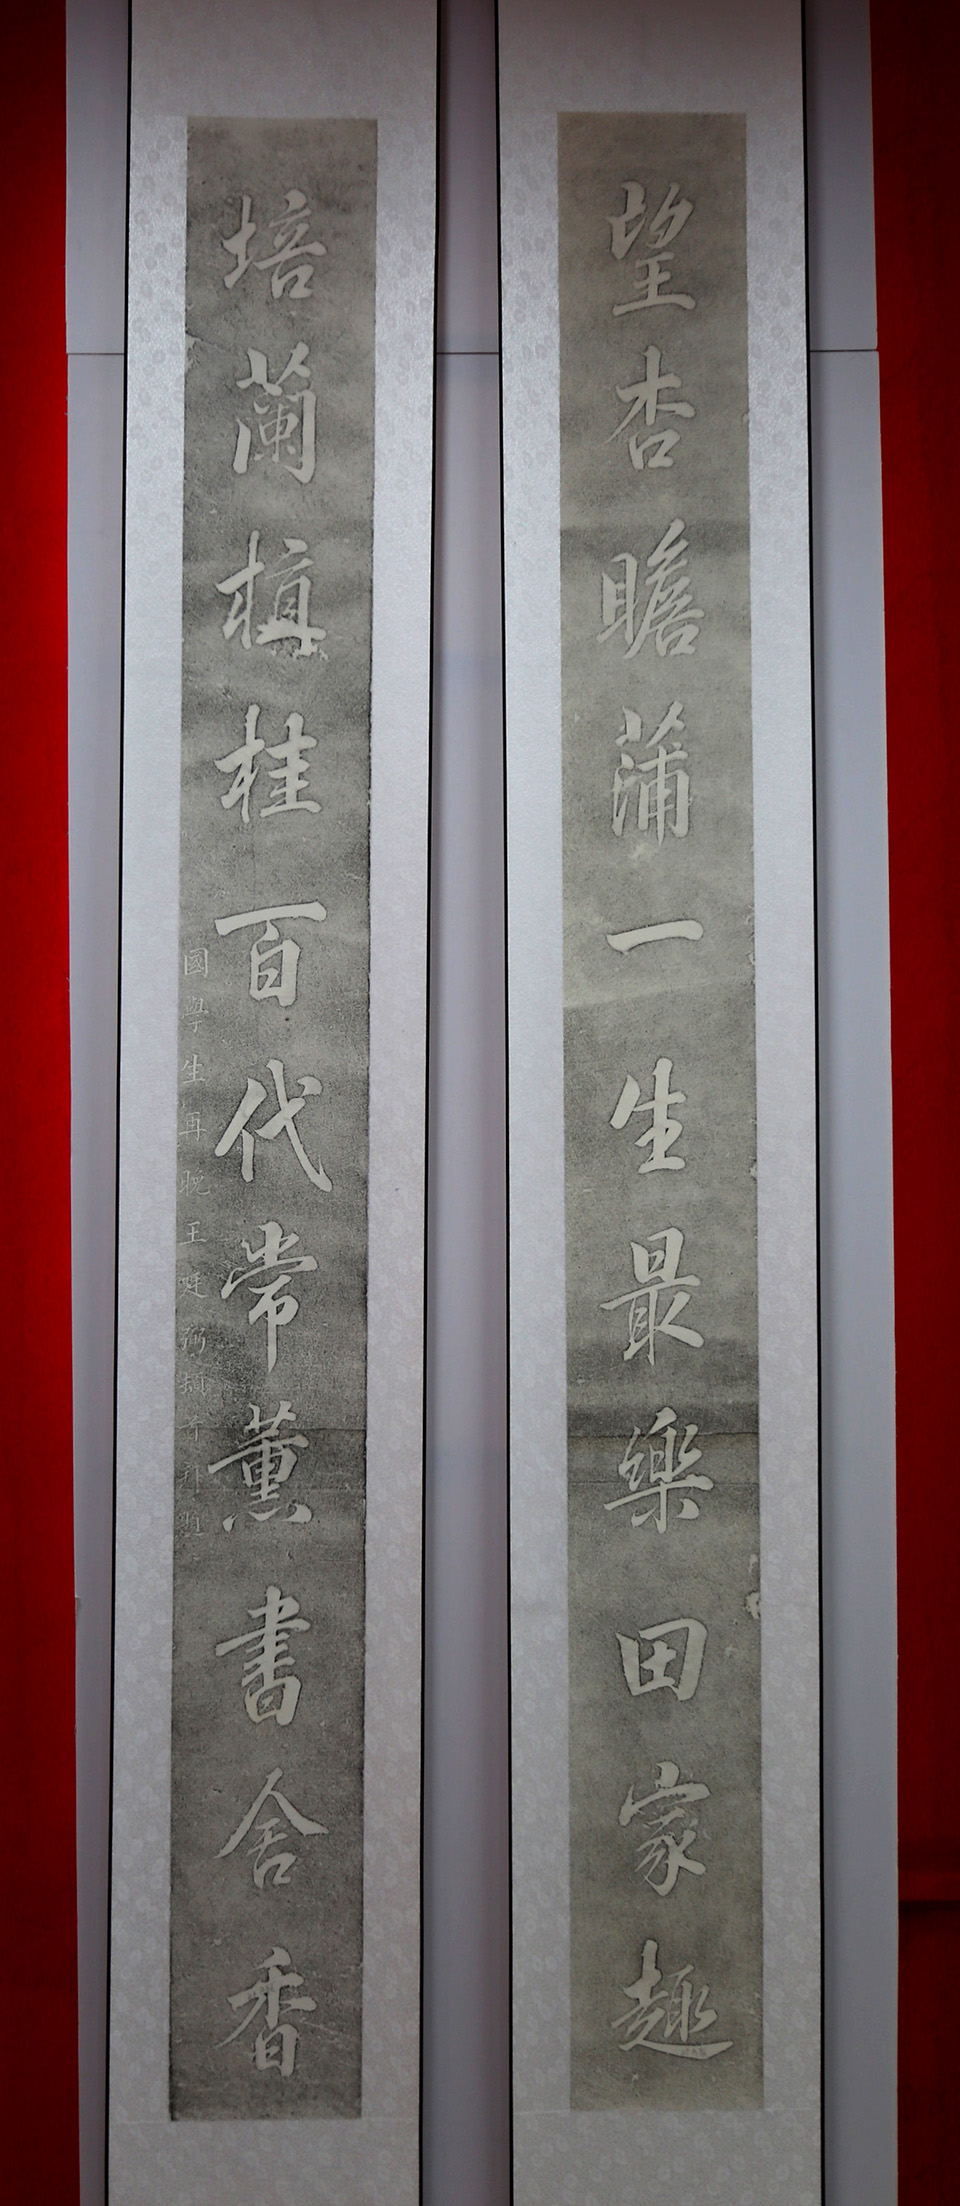 望杏瞻蒲一生最樂田家趣
培蘭植桂百代常薰書舍香
國學生再晚王廷弼頓首拜題